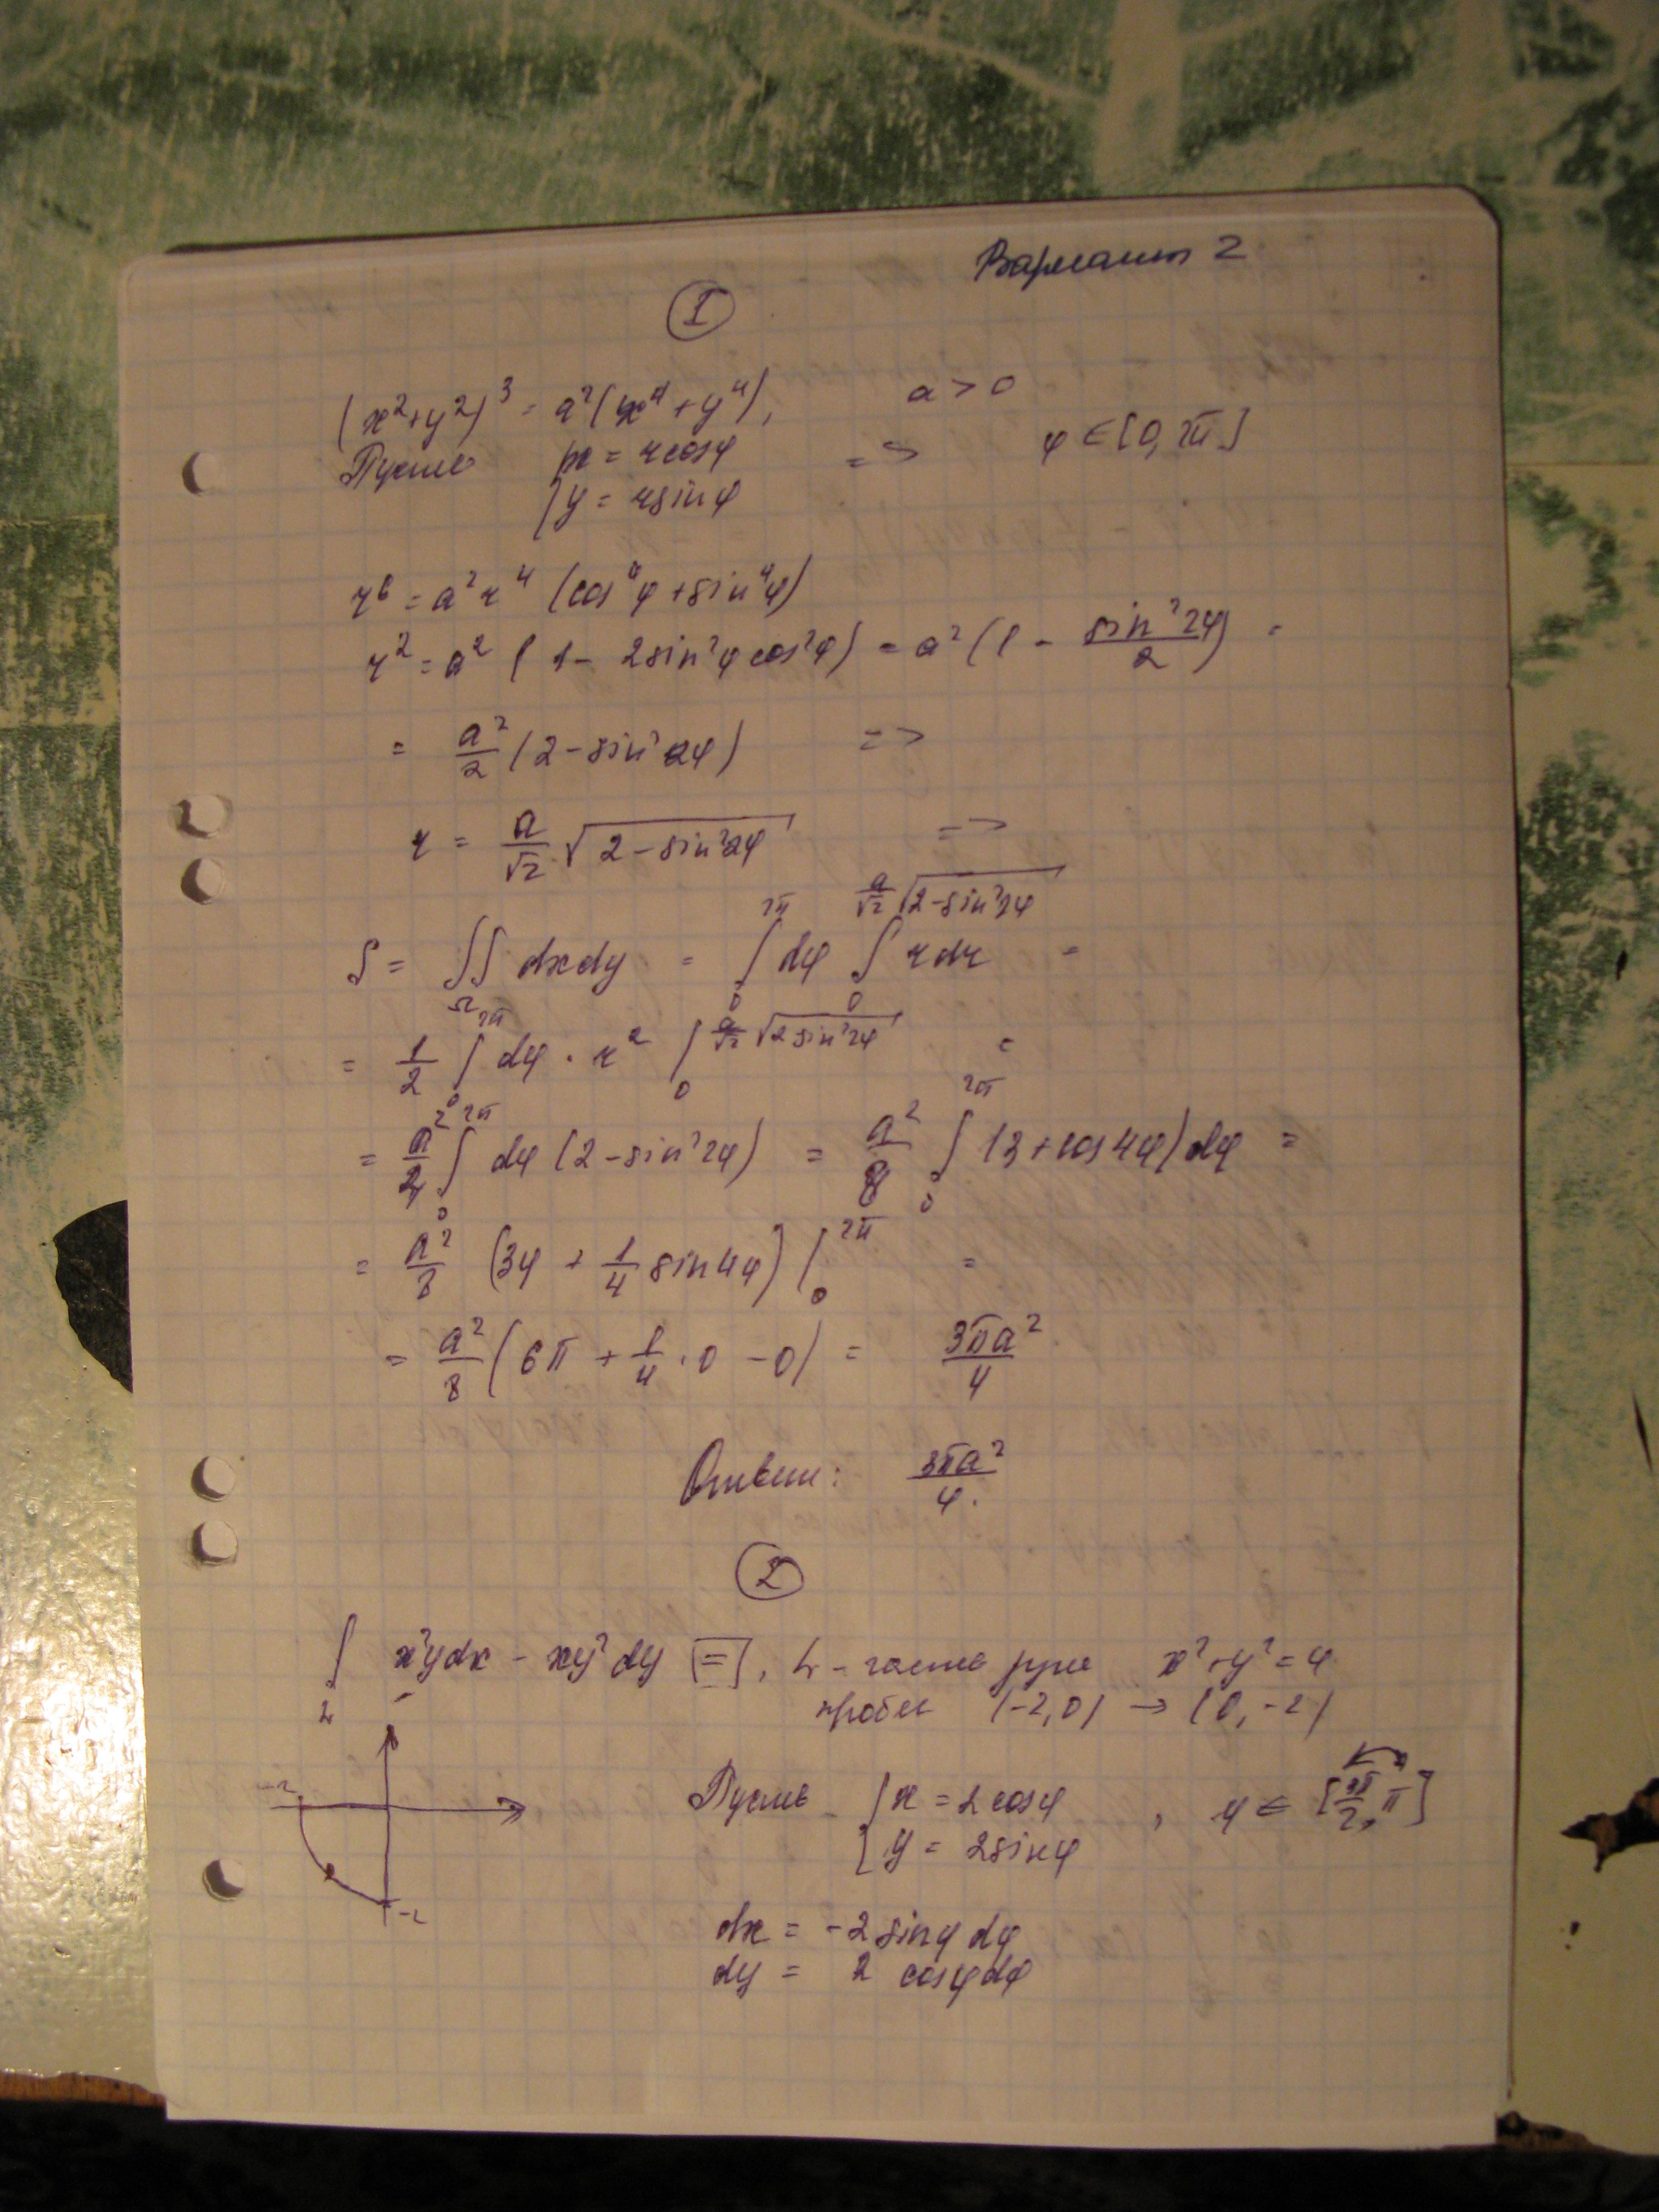 Вариант 2
①
(x²+y²)³ = a²(x⁴+y⁴), a > 0
Пусть { x = r cosφ => φ ∈ [0, 2π]
{ y = r sinφ
r⁶ = a² r⁴ (cos⁴φ + sin⁴φ)
r² = a² (1 - 2sin²φ cos²φ) = a² (1 - sin²2φ / 2) =
= a²/2 (2 - sin²2φ) =>
r = a/√2 √(2 - sin²2φ) =>
S = ∬_Ω dxdy = ∫₀^{2π} dφ ∫₀^{a/√2 √(2-sin²2φ)} r dr =
= 1/2 ∫₀^{2π} dφ · r² |₀^{a/√2 √(2 sin²2φ)} =
= a²/4 ∫₀^{2π} dφ (2 - sin²2φ) = a²/8 ∫₀^{2π} (3 + cos4φ) dφ =
= a²/8 (3φ + 1/4 sin4φ) |₀^{2π} =
= a²/8 (6π + 1/4 · 0 - 0) = 3πa²/4
Ответ: 3πa²/4.
②
∫_L x²y dx - xy² dy [=], L - часть x²+y²=4
пробег (-2,0) → (0,-2)
-2
-2
Пусть { x = 2cosφ , φ ∈ [3π/2, π]
{ y = 2sinφ
dx = -2 sinφ dφ
dy = 2 cosφ dφ